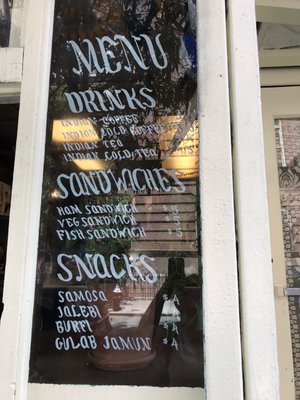 MENU
DRINKS
INDIAN COFFEE
INDIAN COLD COFFEE
INDIAN TEA
INDIAN COLD TEA
SANDWICHES
HAM SANDWICH
VEG SANDWICH
FISH SANDWICH
SNACKS
SAMOSA
JALEBI
BURFI
GULAB JAMUN